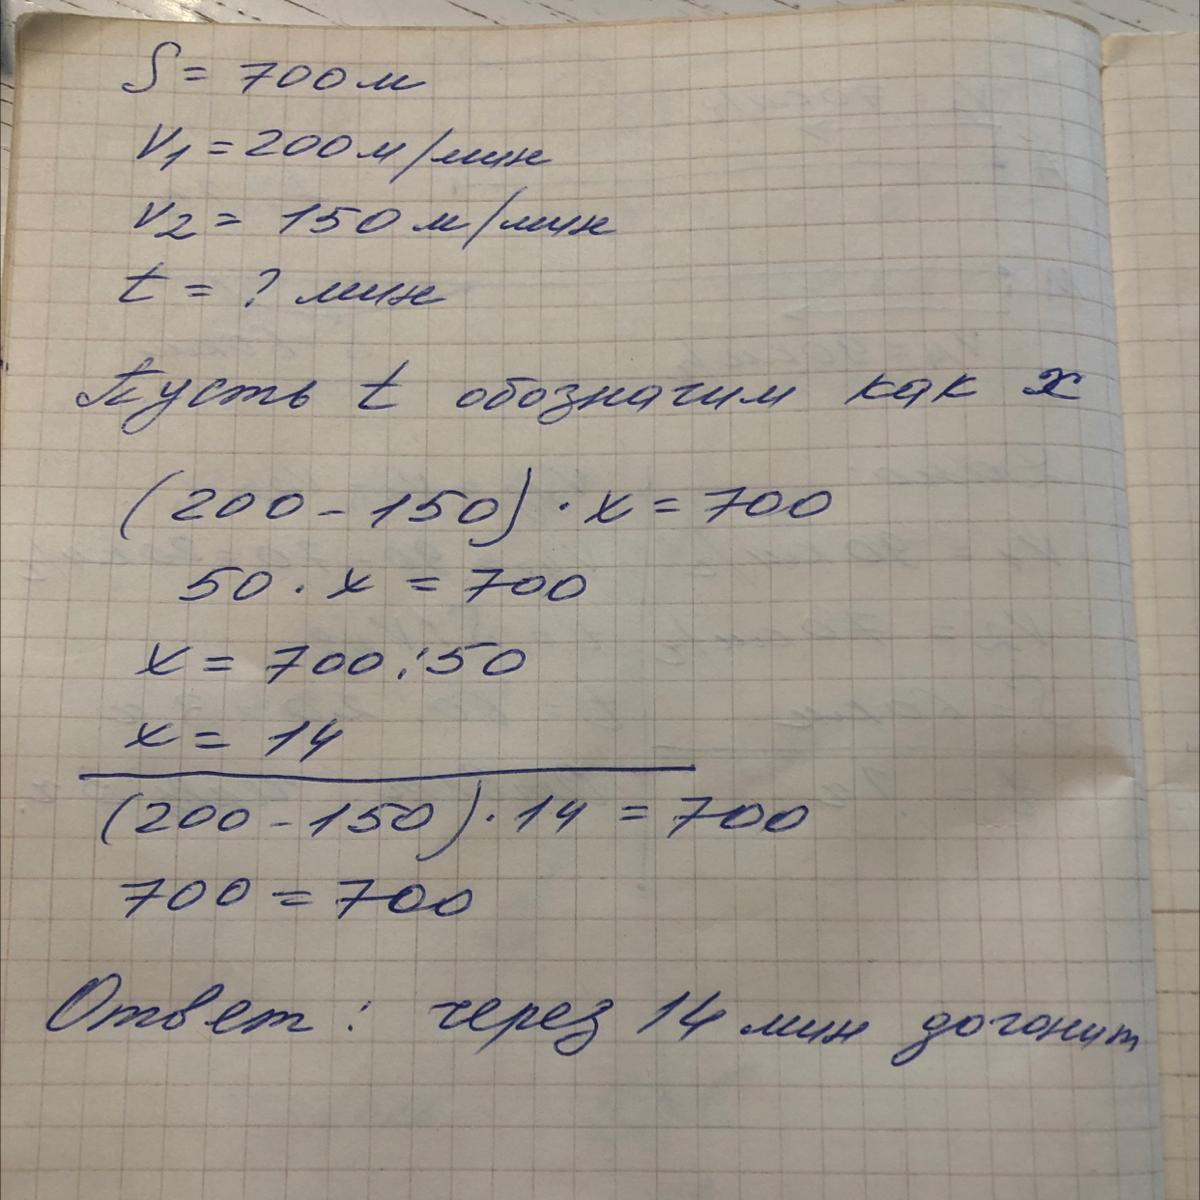 S = 700 м
V1 = 200 м/мин
V2 = 150 м/мин
t = ? мин
Пусть t обозначим как x
(200 - 150) · x = 700
50 · x = 700
x = 700 : 50
x = 14
(200 - 150) · 14 = 700
700 = 700
Ответ : через 14 мин догонит